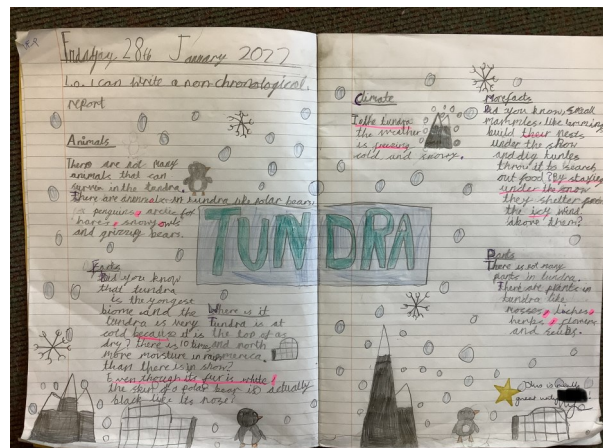 Friday, 28th January 2022
L.o. I can write a non chronological
report
Animals
There are not many
animals that can
survive in the tundra.
There are animals in tundra like polar bears
penguins, arctic fox
hares, snowy owls
and grizzly bears.
Facts
Did you know
that tundra
is the yongest
biome and the
tundra is very
cold because it is
dry? there is 10 times
more moisture in
than there is in snow?
Even though its fur is white,
the skin of a polar bear is actually
black like its nose!
Where is it
Tundra is at
the top of
and north
america.
TUNDRA
Climate
In the tundra
the weather
is freezing
cold and snowy.
More facts
Did you know, small
like lemming
build their nests
under the snow
and dig tunles
to search
out food? By staying
under the snow
they shelter from
the icy wind
above them?
Plants
There is not many
plants in tundra.
There are plants in
tundra like
mosses, lichen,
herbs, flowers
and
this is really
great